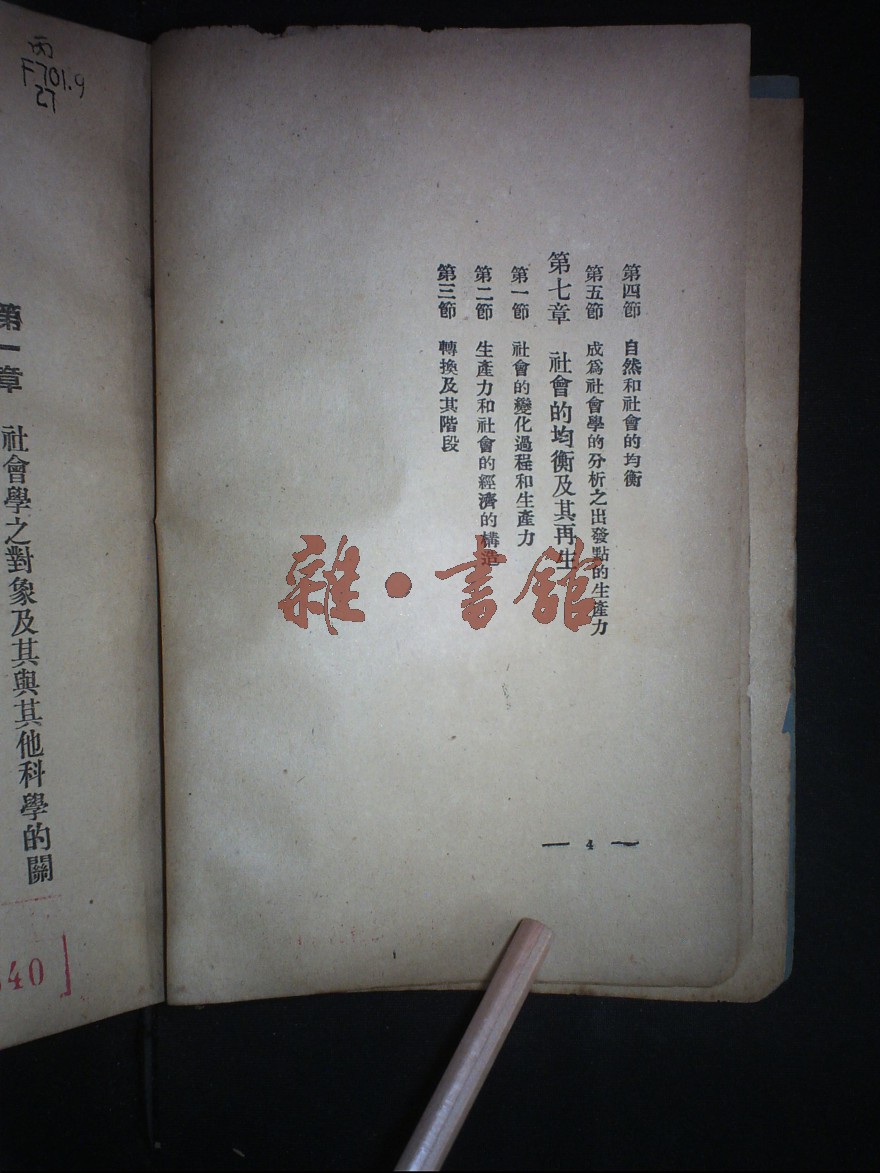 第四節 自然和社會的均衡
第五節 成爲社會學的分析之出發點的生產力
第七章 社會的均衡及其再生
第一節 社會的變化過程和生產力
第二節 生產力和社會的經濟的構造
第三節 轉換及其階段
— 4 —
雜·書館
丙
F701.9
27
第一章 社會學之對象及其與其他科學的關
40